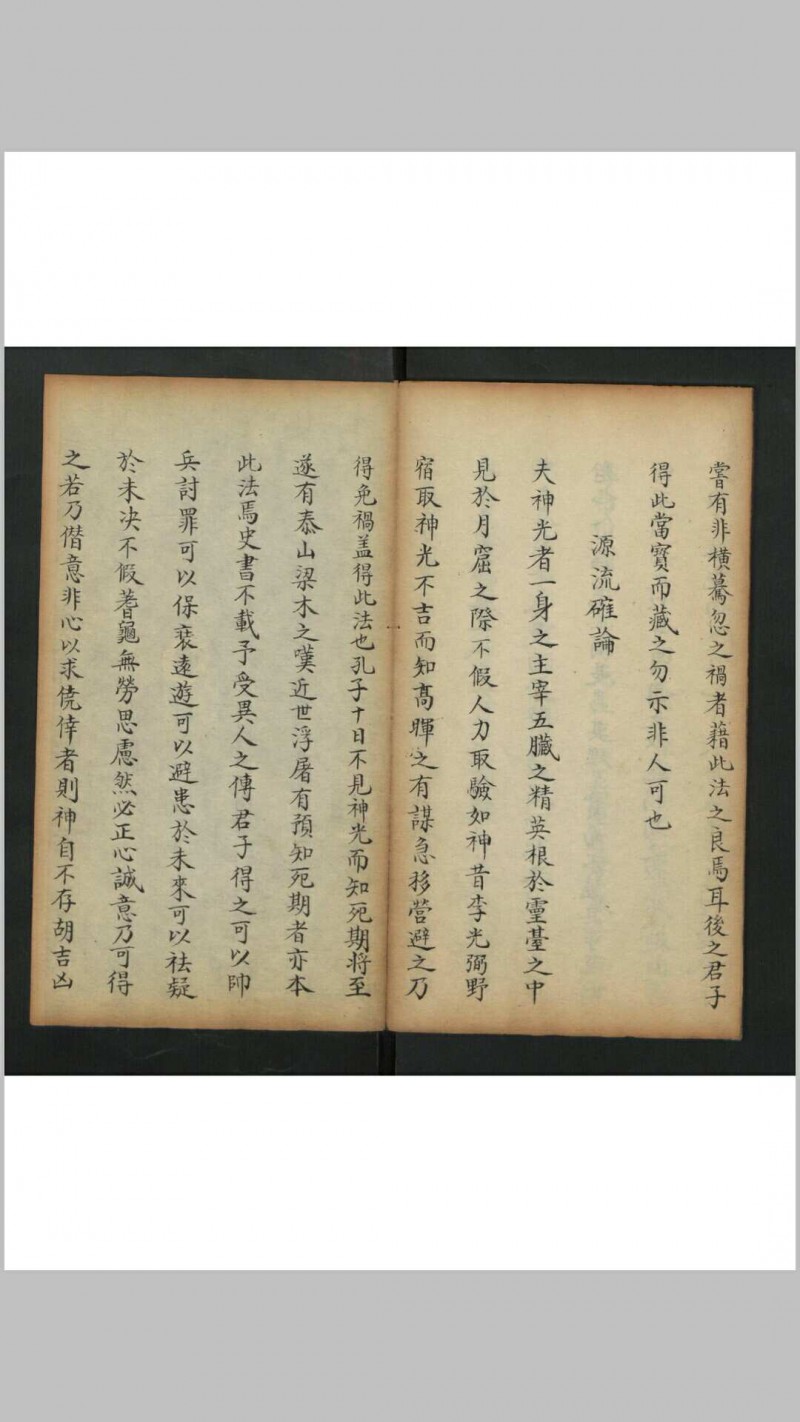 嘗有非橫驀忽之禍者藉此法之良焉耳後之君子
得此當寳而藏之勿示非人可也
源流確論
夫神光者一身之主宰五臟之精英根於靈臺之中
見於月窟之際不假人力取驗如神昔李光弼野
宿取神光不吉而知高暉之有謀急移營避之乃
得免禍盖得此法也孔子十日不見神光而知死期將至
遂有泰山梁木之嘆近世浮屠有預知死期者亦本
此法焉史書不載予受異人之傳君子得之可以帥
兵討罪可以保衰遠遊可以避患於未來可以袪疑
於未决不假蓍龜無勞思慮然必正心誠意乃可得
之若乃僭意非心以求僥倖者則神自不存胡吉凶